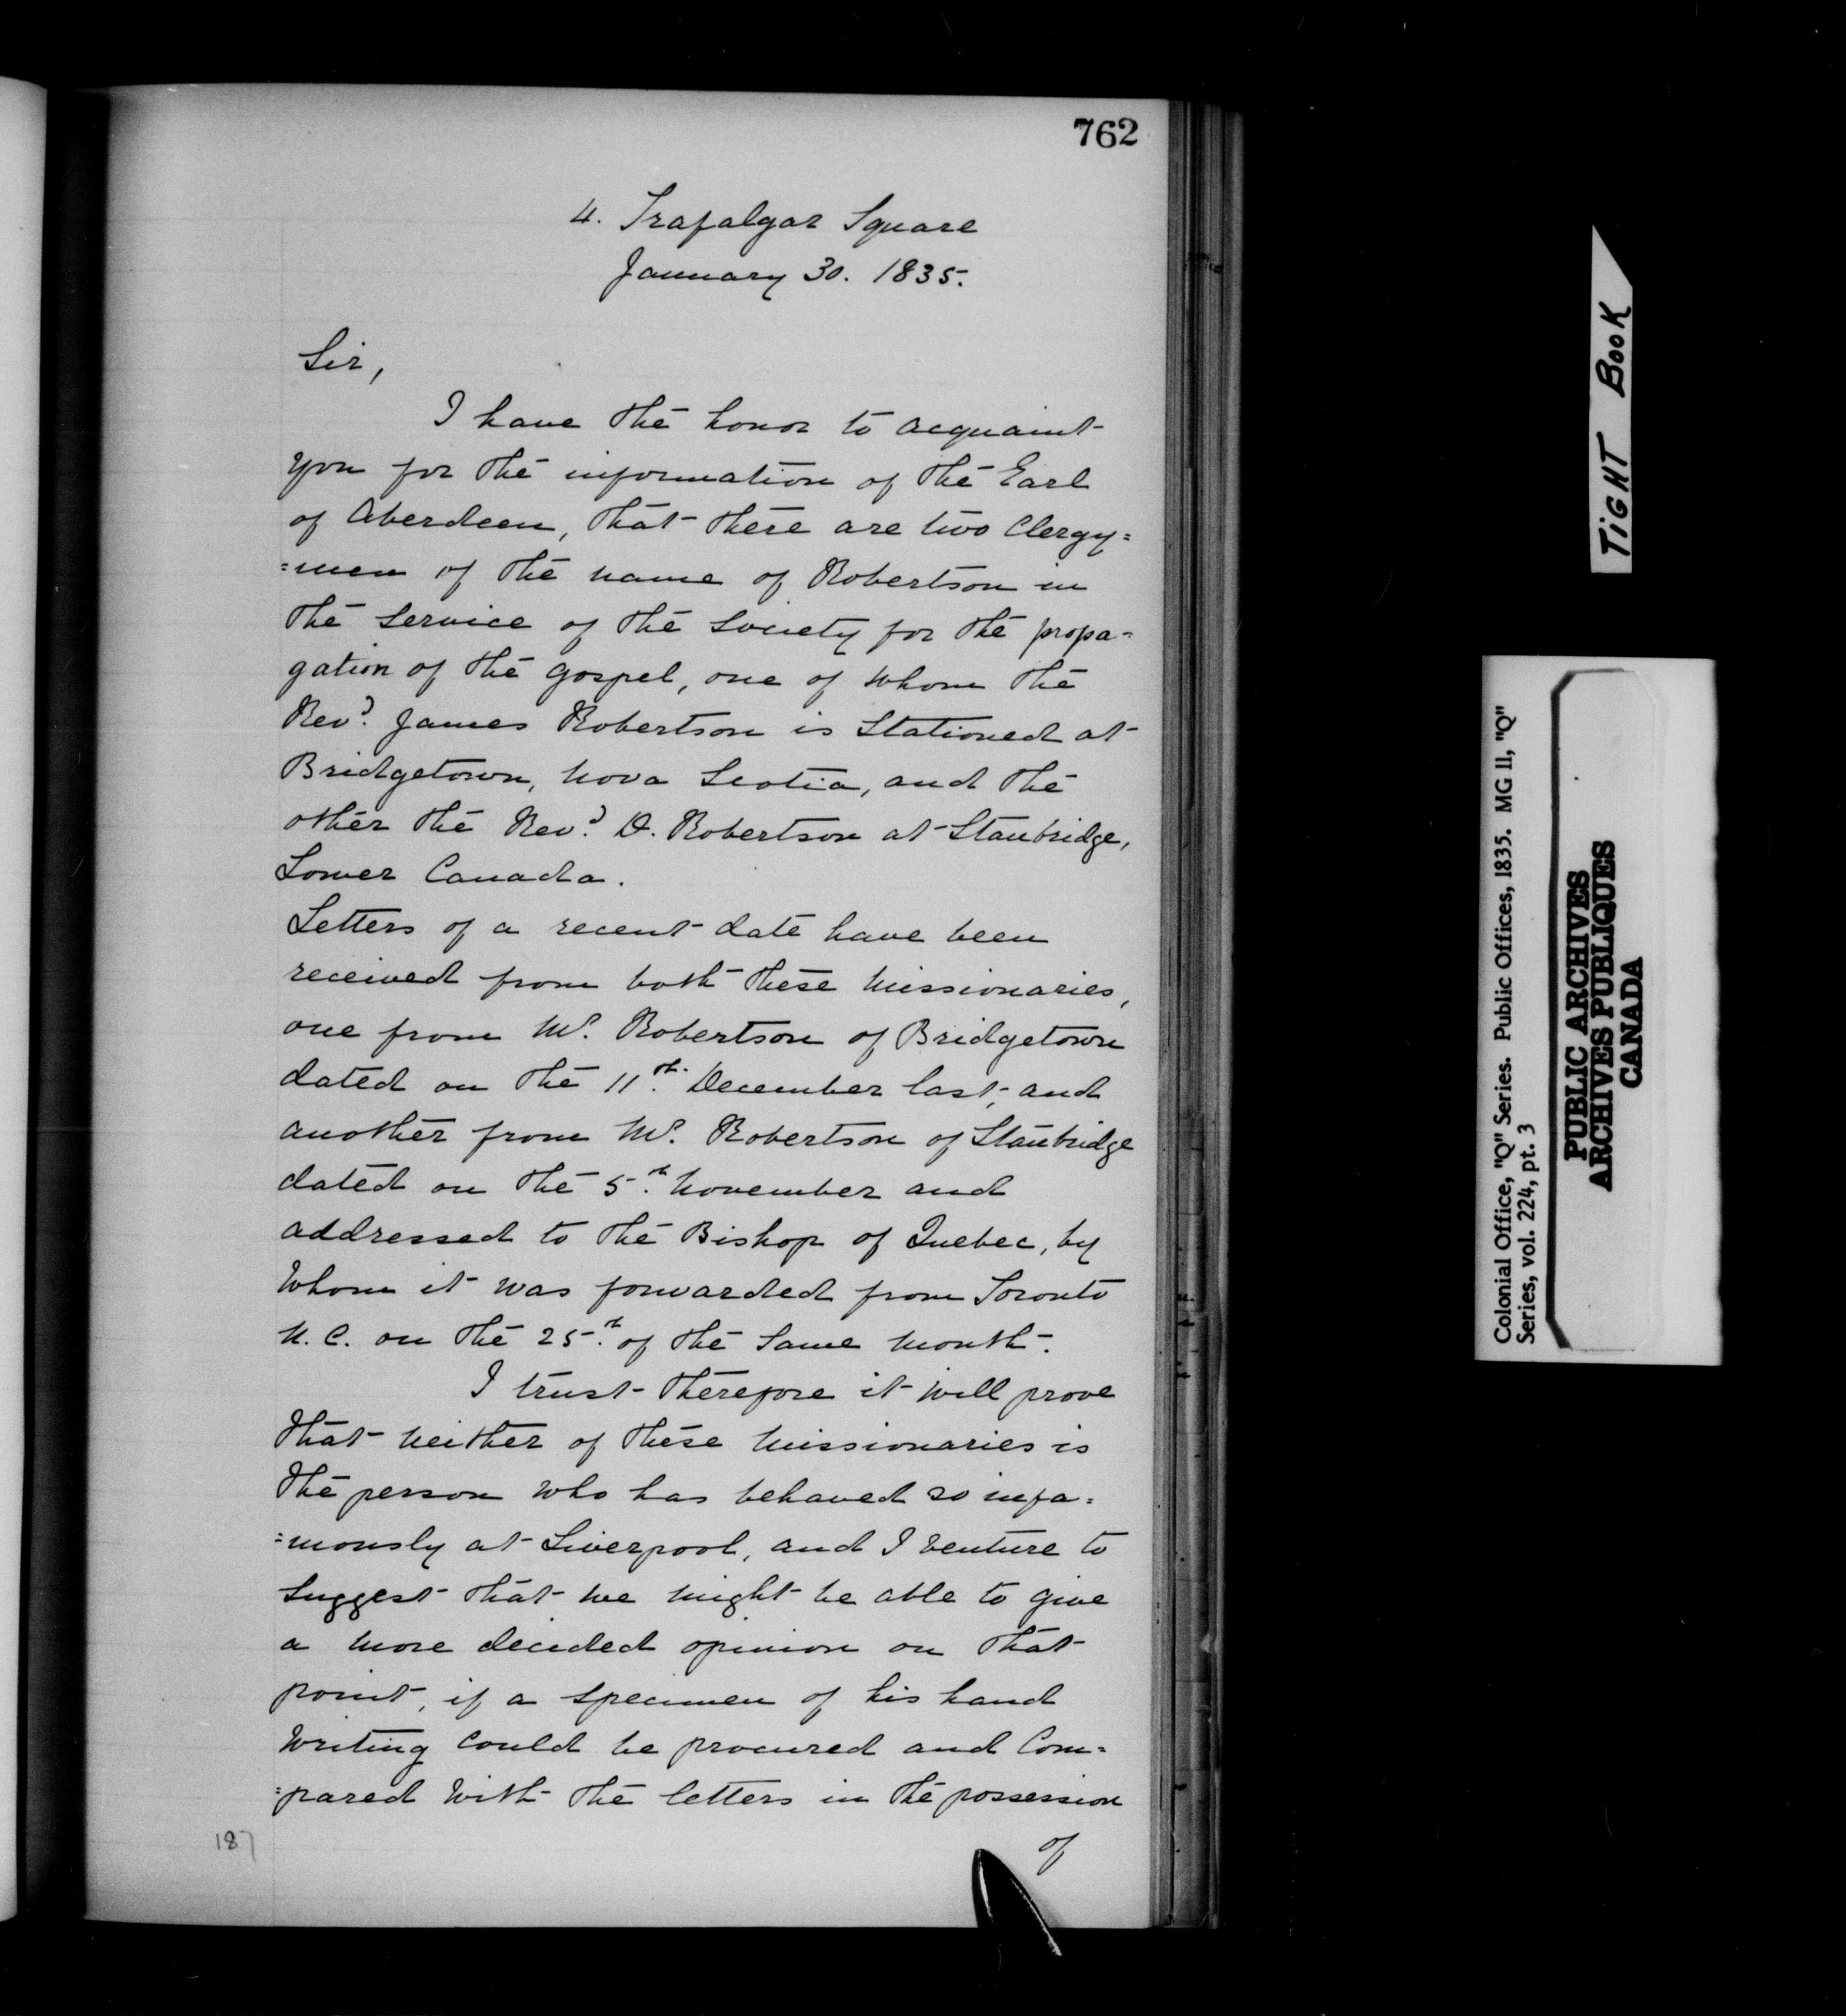 762
4. Trafalgar Square
January 30. 1835.
Sir,
I have the honor to acquaint
you for the information of the Earl
of Aberdeen, that there are two Clergy=
=men of the name of Robertson in
the Service of the Society for the propa-
gation of the gospel, one of whom the
Revd. James Robertson is Stationed at
Bridgetown, Nova Scotia, and the
other the Revd. D. Robertson at Stanbridge,
Lower Canada.
Letters of a recent date have been
received from both these Missionaries,
one from Mr. Robertson of Bridgetown
dated on the 11th. December last, and
another from Mr. Robertson of Stanbridge
dated on the 5th. November and
addressed to the Bishop of Quebec, by
Whom it was forwarded from Toronto
U. C. on the 25th. of the Same Month.
I trust therefore it will prove
that neither of these Missionaries is
the person who has behaved so infa=
=mously at Liverpool, and I venture to
Suggest that we might be able to give
a more decided opinion on that
point, if a specimen of his hand
Writing could be procured and Com=
=pared With the letters in the possession
of
187
TiGHT BooK
Colonial Office, "Q" Series. Public Offices, 1835. MG 11, "Q"
Series, vol. 224, pt. 3
PUBLIC ARCHIVES
ARCHIVES PUBLIQUES
CANADA